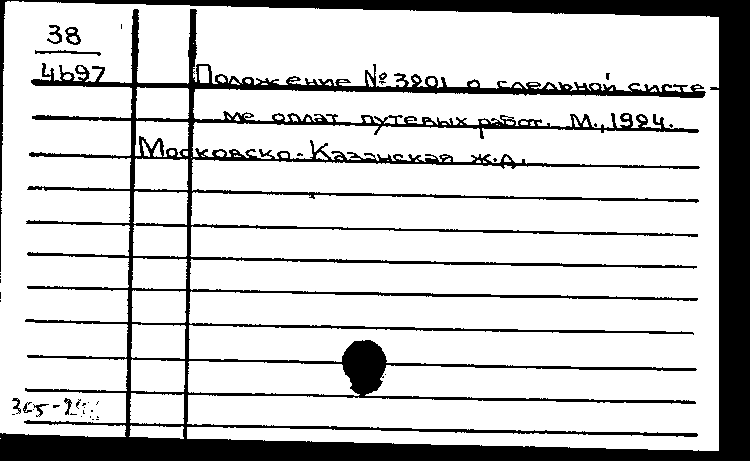 38
4697
Положение № 3801 о сдельной систе-
ме оплат путевых работ. М., 1924.
Московско-Казанская ж.д.